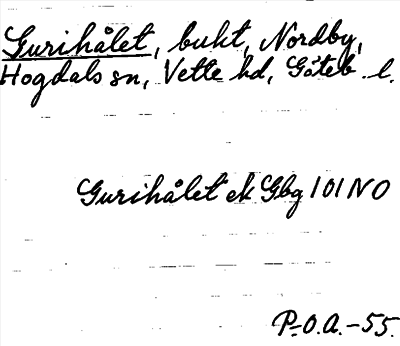 Gurihålet, bukt, Nordby,
Hogdals sn, Vette hd, Göteb. l.
Gurihålet ek Gbg 101 NO
P.O.A.-55.